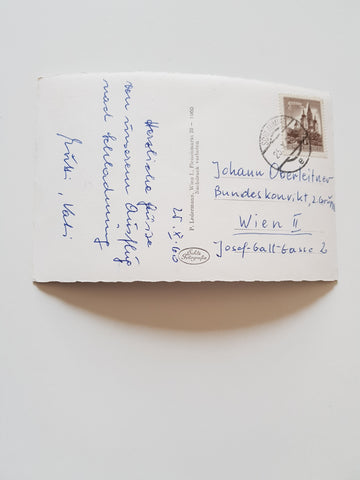 25.X.60
Herzliche Grüsse
von unserem Ausflug
nach Schladming
Mutti, Vati
P. Ledermann, Wien I., Fleischmarkt 20 - 1960
Nachdruck verboten
Echte
Fotografie
Johann Oberleitner
Bundeskonvikt, 2. Gruppe
Wien II
Josef-Gall-Gasse 2